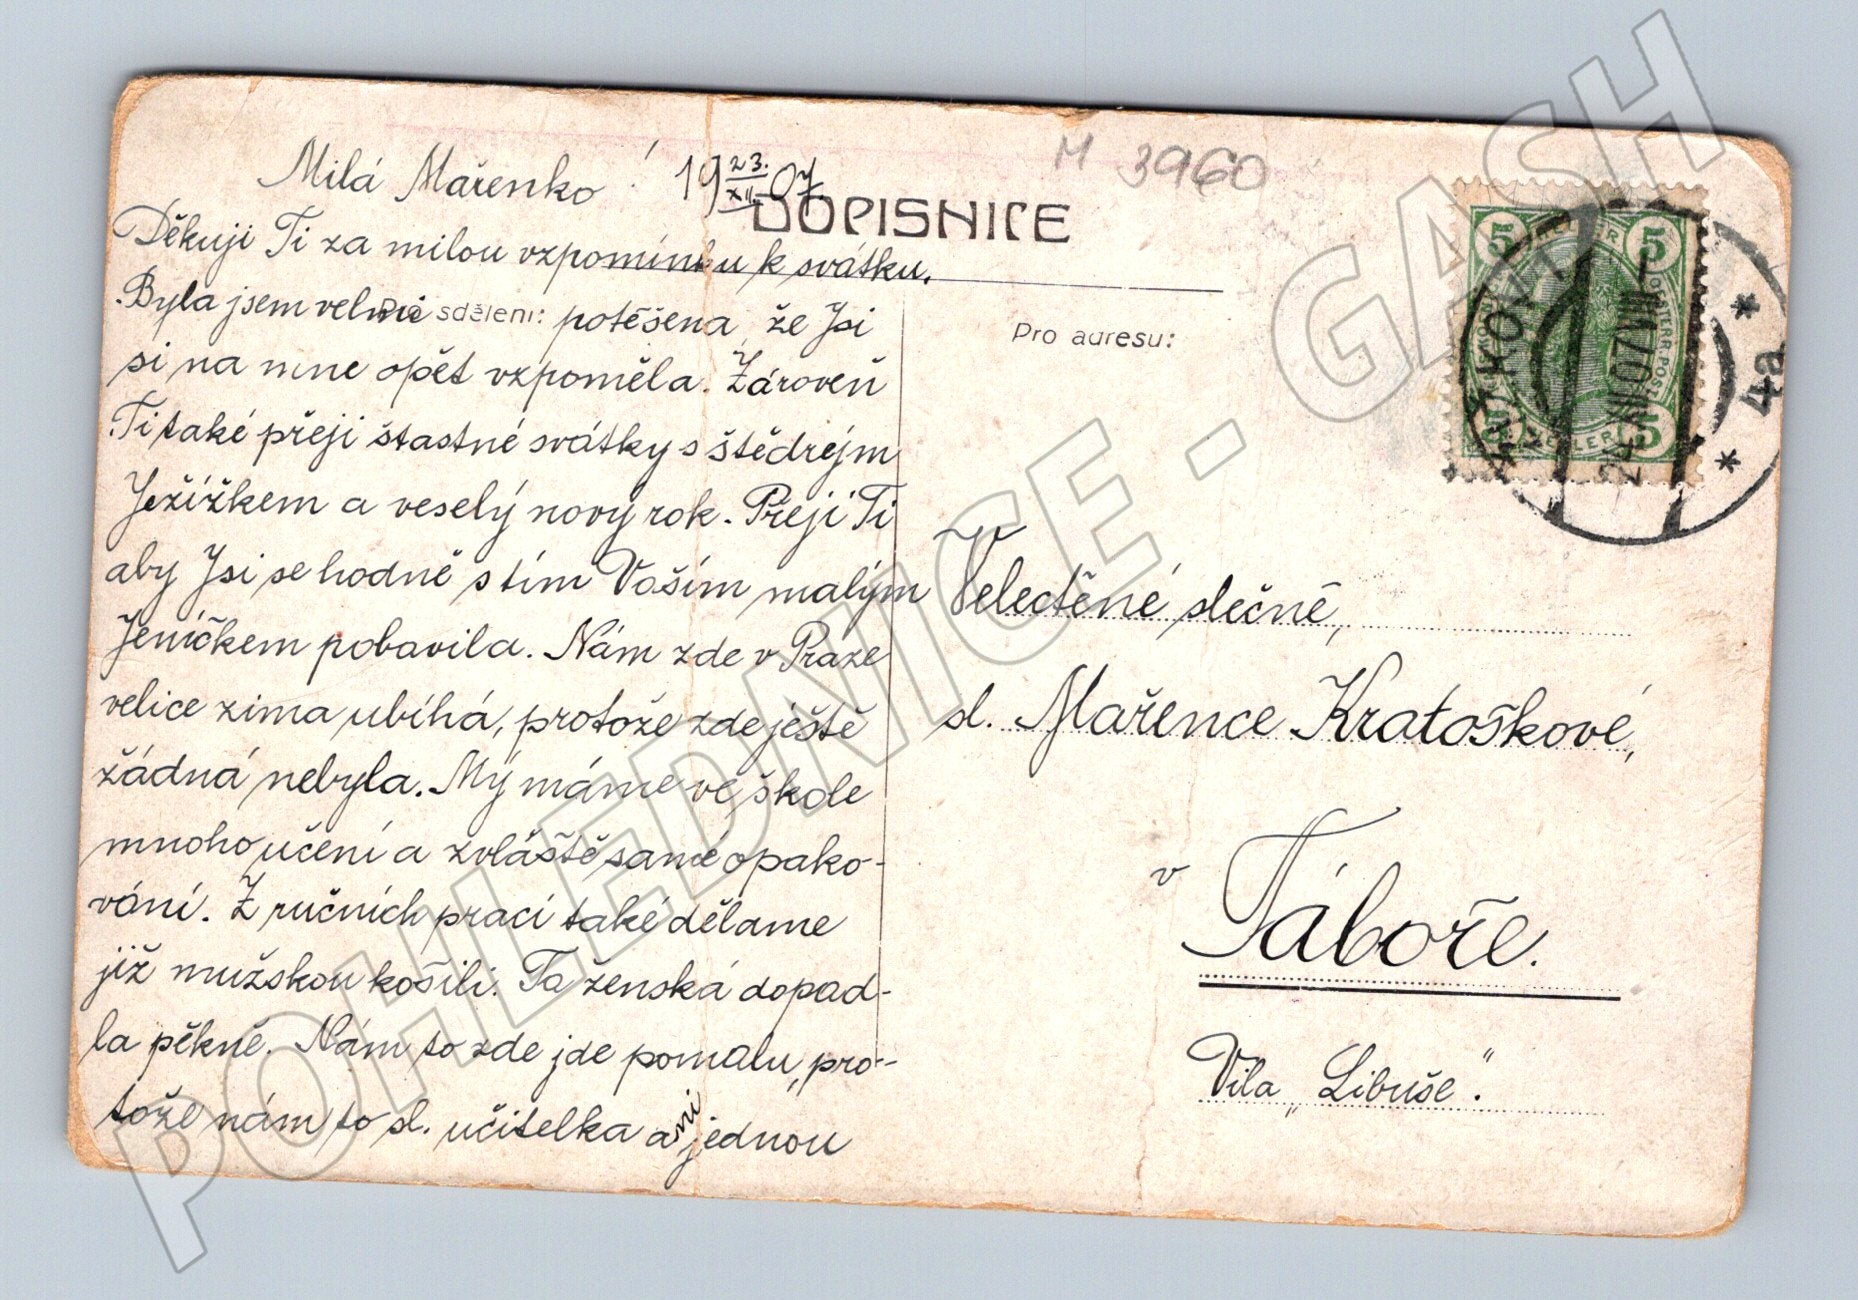 Milá Mařenko! 19 23./XII. 07.
M 3960
DOPISNICE
Děkuji Ti za milou vzpomínku k svátku.
Byla jsem velmi potěšena, že Jsi
Pro sdělení:
si na mne opět vzpoměla. Zároveň
Ti také přeji štastné svátky s štědrým
Ježížkem a veselý nový rok. Přeji Ti
aby Jsi se hodně s tím Vaším malým
Jeníčkem pobavila. Nám zde v Praze
velice zima ubíhá, protože zde ještě
žádná nebyla. Mý máme ve škole
mnoho učení a zvláště samé opako-
vání. Z ručních prací také děláme
již mužskou košili. Ta ženská dopad-
la pěkně. Nám to zde jde pomalu, pro-
tože nám to sl. učitelka ani jednou
Pro adresu:
Velectěné slečně,
sl. Mařence Kratoškové,
v Táboře.
Vila „Libuše".
5 HELLER 5
5 HELLER 5
ŽIŽKOV 1
24.XII.07.VIII
* 4a *
POHLEDNICE - GASH